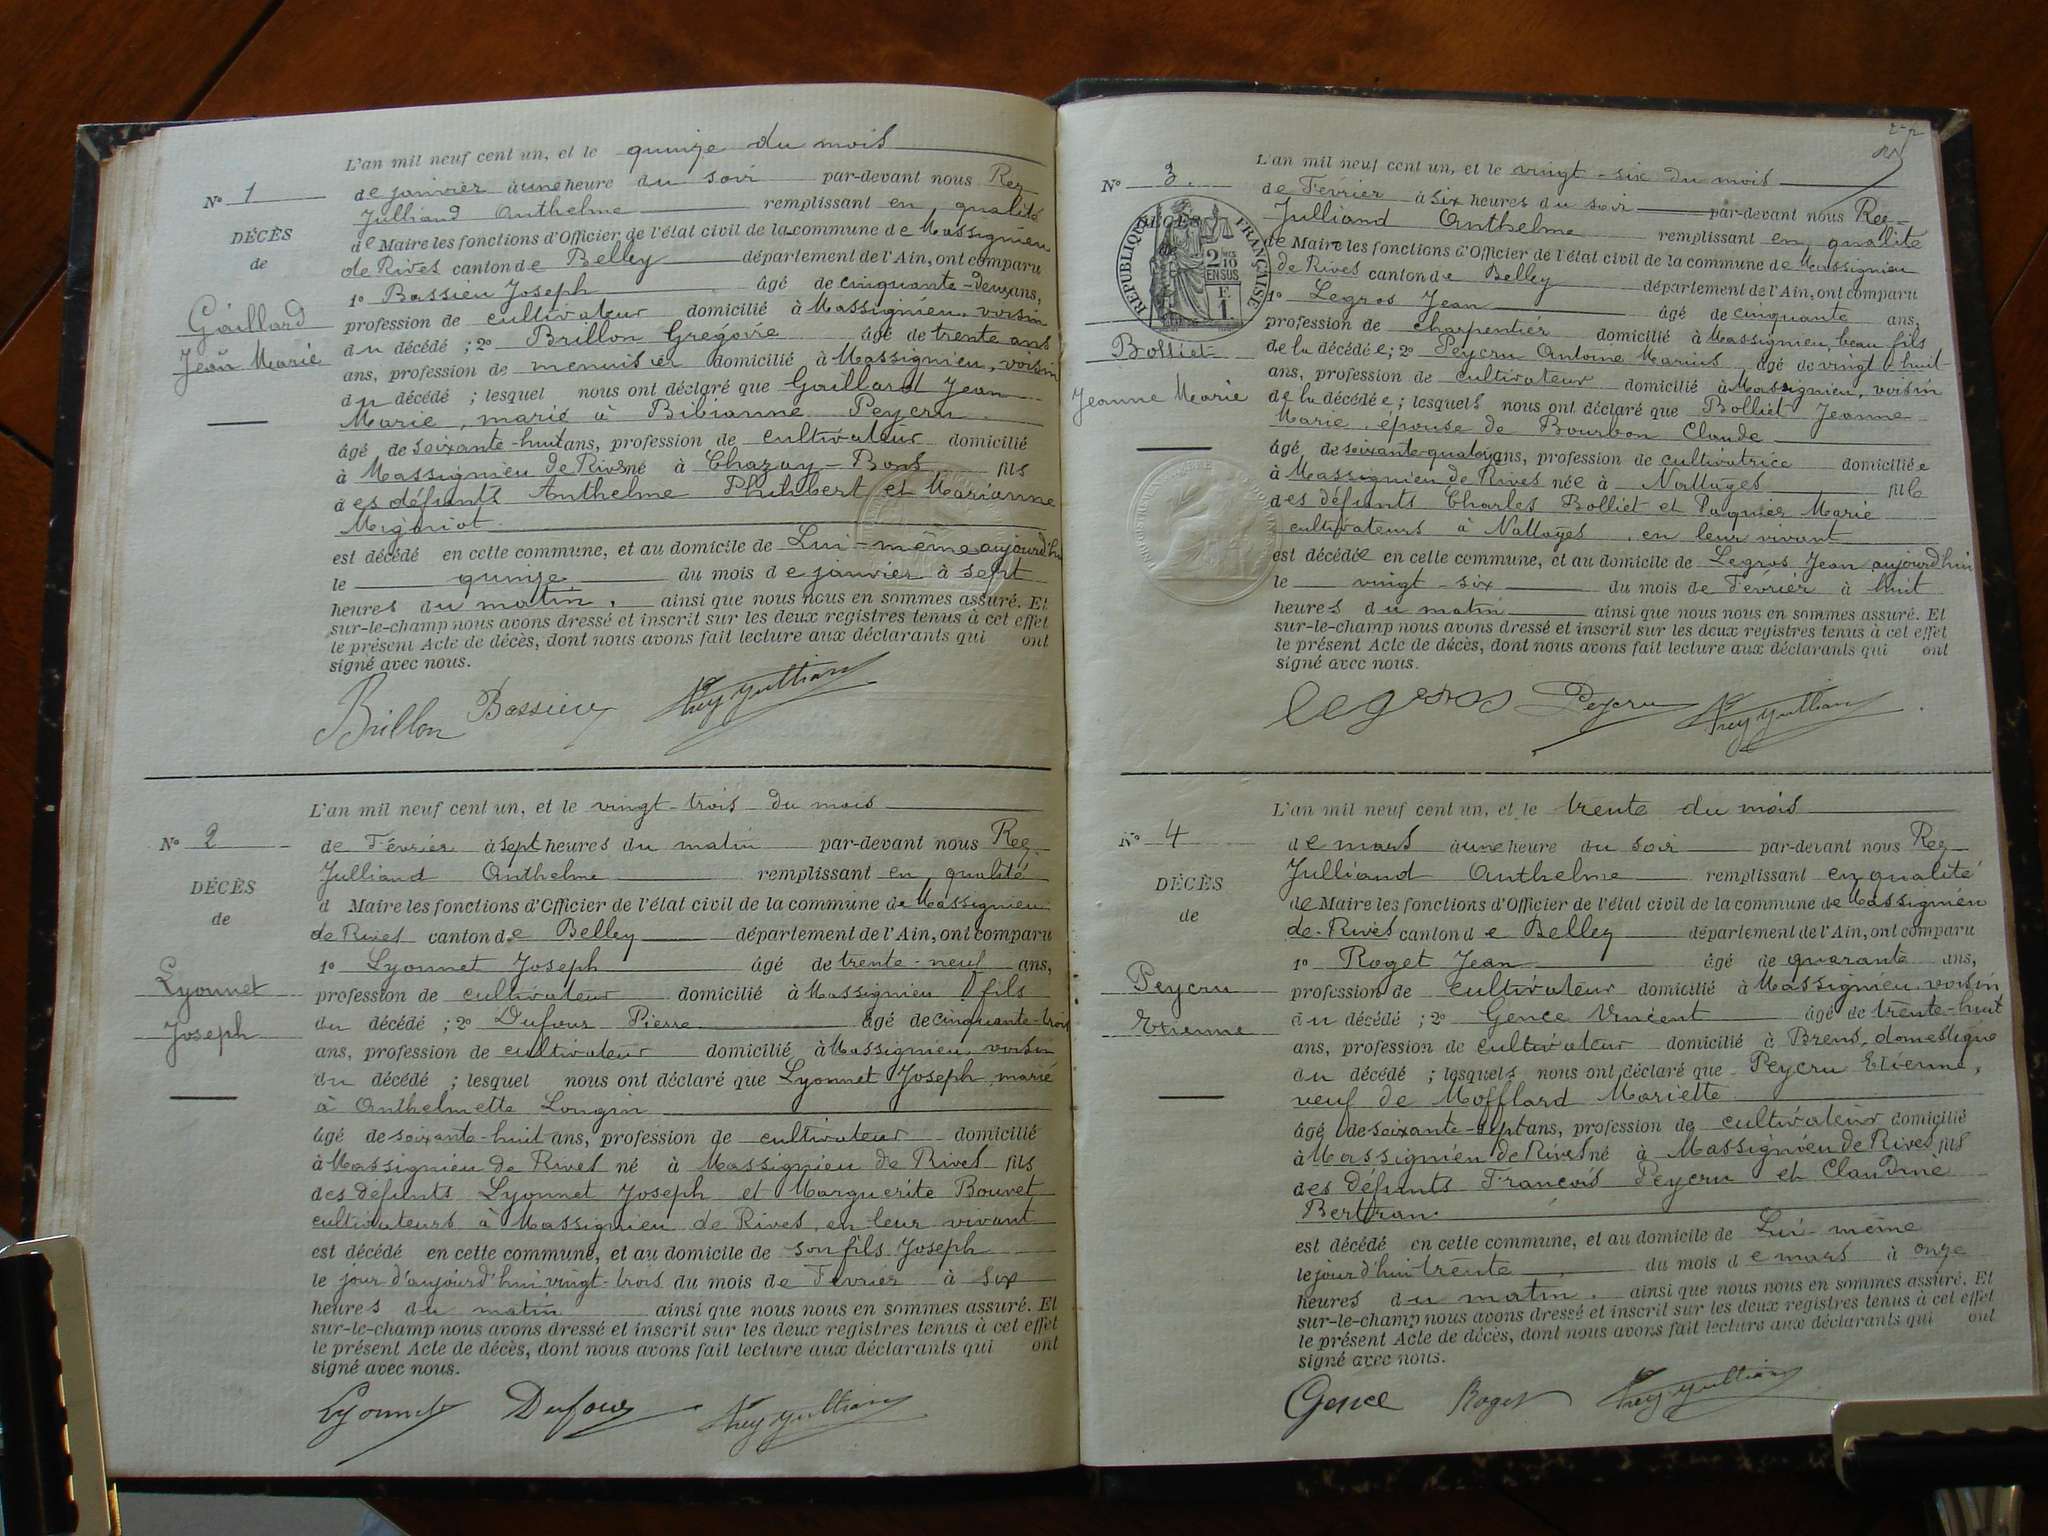 L'an mil neuf cent un, et le quinze du mois
N° 1
de janvier à une heure du soir par-devant nous Rey
Julliand Anthelme remplissant en qualité
DÉCÈS
de Maire les fonctions d'Officier de l'état civil de la commune de Massignieu
de
de Rives canton de Belley département de l'Ain, ont comparu
1° Bassieu Joseph âgé de cinquante-deux ans,
Gaillard
profession de cultivateur domicilié à Massignieu, voisin
du décédé ; 2° Brillon Grégoire âgé de trente ans
Jean Marie
ans, profession de menuisier domicilié à Massignieu, voisin
du décédé ; lesquel nous ont déclaré que Gaillard Jean
Marie, marié à Bibianne Peycru
âgé de soixante-huit ans, profession de cultivateur domicilié
à Massignieu de Rives né à Chazay-Bons fils
des défunts Anthelme Philibert et Marianne
Mignriot
est décédé en cette commune, et au domicile de Lui-même aujourd'hui
le quinze du mois de janvier à sept
heures du matin, ainsi que nous nous en sommes assuré. Et
sur-le-champ nous avons dressé et inscrit sur les deux registres tenus à cet effet
le présent Acte de décès, dont nous avons fait lecture aux déclarants qui ont
signé avec nous.
Brillon Bassieu Rey Jullian
L'an mil neuf cent un, et le vingt-trois du mois
N° 2
de Février à sept heures du matin par-devant nous Rey
Julliand Anthelme remplissant en qualité
DÉCÈS
d Maire les fonctions d'Officier de l'état civil de la commune de Massignieu
de
de Rives canton de Belley département de l'Ain, ont comparu
1° Lyonnet Joseph âgé de trente-neuf ans,
Lyonnet
profession de cultivateur domicilié à Massignieu fils
du décédé ; 2° Dufour Pierre âgé de cinquante-trois
Joseph
ans, profession de cultivateur domicilié à Massignieu, voisin
du décédé ; lesquel nous ont déclaré que Lyonnet Joseph, marié
à Anthelmette Longin
âgé de soixante-huit ans, profession de cultivateur domicilié
à Massignieu de Rives né à Massignieu de Rives fils
des défunts Lyonnet Joseph et Marguerite Bouvet
cultivateurs à Massignieu de Rives, en leur vivant
est décédé en cette commune, et au domicile de son fils Joseph
le jour d'aujourd'hui vingt-trois du mois de Février à six
heures du matin ainsi que nous nous en sommes assuré. Et
sur-le-champ nous avons dressé et inscrit sur les deux registres tenus à cet effet
le présent Acte de décès, dont nous avons fait lecture aux déclarants qui ont
signé avec nous.
Lyonnet Dufour Rey Jullian
L'an mil neuf cent un, et le vingt-six du mois
N° 3.
de Février à six heures du soir par-devant nous Rey
Julliand Anthelme remplissant en qualité
DÉCÈS
RÉPUBLIQUE FRANÇAISE
2/10 EN SUS
F. 1.
de Maire les fonctions d'Officier de l'état civil de la commune de Massignieu
de Rives canton de Belley département de l'Ain, ont comparu
1° Legros Jean âgé de cinquante ans,
profession de charpentier domicilié à Massignieu, beau fils
Bolliet
de la décédée ; 2° Peycru Antoine Marius âgé de vingt-huit
ans, profession de cultivateur domicilié à Massignieu, voisin
Jeanne Marie
de la décédée ; lesquels nous ont déclaré que Bolliet Jeanne
Marie, épouse de Bourbon Claude
âgé de soixante-quatorze ans, profession de cultivatrice domiciliée
à Massignieu de Rives née à Nattages fille
des défunts Charles Bolliet et Paquier Marie
cultivateurs à Nattages, en leur vivant
est décédée en cette commune, et au domicile de Legros Jean aujourd'hui
le vingt-six du mois de Février à huit
heures du matin ainsi que nous nous en sommes assuré. Et
sur-le-champ nous avons dressé et inscrit sur les deux registres tenus à cet effet
le présent Acte de décès, dont nous avons fait lecture aux déclarants qui ont
signé avec nous.
legros Peycru Rey Jullian
L'an mil neuf cent un, et le trente du mois
N° 4
de mars à une heure du soir par-devant nous Rey
Julliand Anthelme remplissant en qualité
DÉCÈS
de Maire les fonctions d'Officier de l'état civil de la commune de Massignieu
de
de Rives canton de Belley département de l'Ain, ont comparu
1° Roget Jean âgé de quarante ans,
Peycru
profession de cultivateur domicilié à Massignieu, voisin
du décédé ; 2° Gence Vincent âgé de trente-huit
Etienne
ans, profession de cultivateur domicilié à Brens, domestique
du décédé ; lesquels nous ont déclaré que Peycru Etienne,
veuf de Mofflard Mariette
âgé de soixante-sept ans, profession de cultivateur domicilié
à Massignieu de Rives né à Massignieu de Rives fils
des défunts François Peycru et Claudine
Bertran
est décédé en cette commune, et au domicile de Lui-même
le jour d'hui trente du mois de mars à onze
heures du matin. ainsi que nous nous en sommes assuré. Et
sur-le-champ nous avons dressé et inscrit sur les deux registres tenus à cet effet
le présent Acte de décès, dont nous avons fait lecture aux déclarants qui ont
signé avec nous.
Gence Roget Rey Jullian